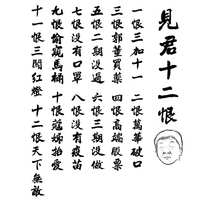 見君十二恨
一恨三加十一 二恨萬華破口
三恨郭董買藥 四恨高端股票
五恨二期沒過 六恨三期沒做
七恨沒有口罩 八恨沒有疫苗
九恨偷窺馬桶 十恨寇姊拍愛
十一恨三闖紅燈 十二恨天下無敵